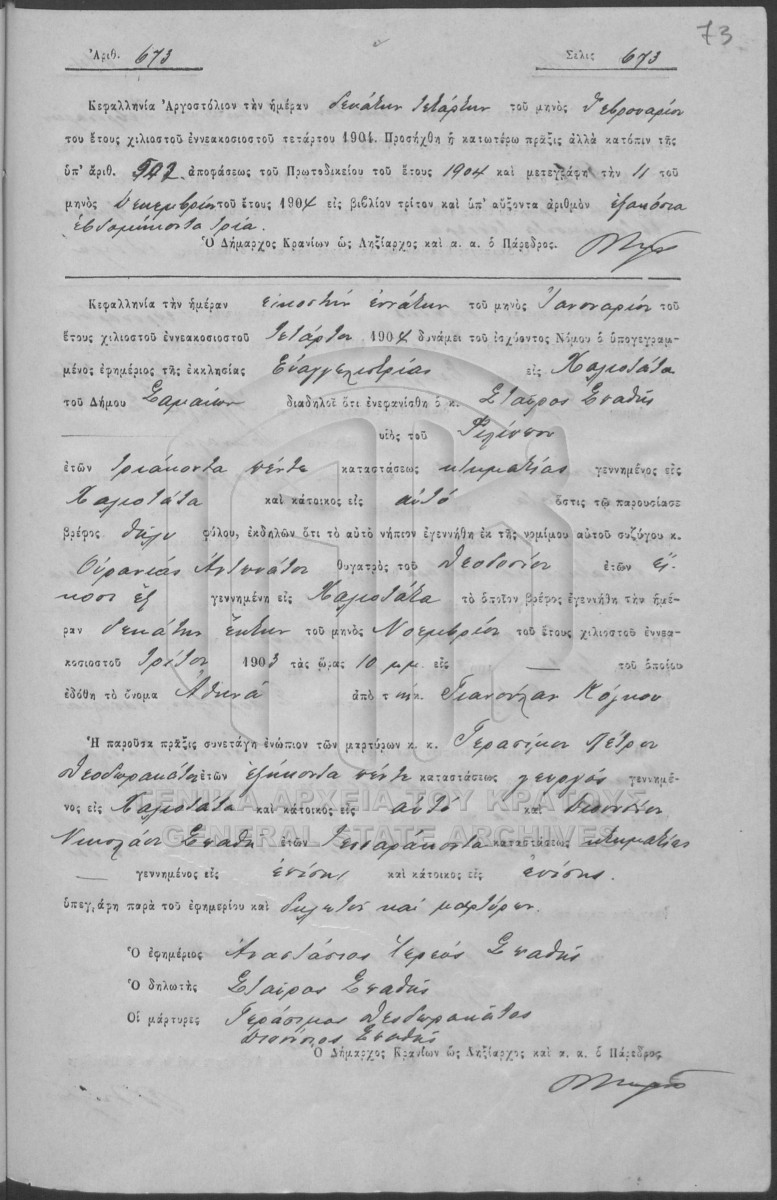 73
Ἀριθ. 673 Σελις 673
Κεφαλληνία Ἀργοστόλιον τὴν ἡμέραν δεκάτην τετάρτην τοῦ μηνὸς Φεβρουαρίου
του ἔτους χιλιοστοῦ ἐννεακοσιοστοῦ τετάρτου 1904. Προσήχθη ἡ κατωτέρω πρᾶξις ἀλλὰ κατόπιν τῆς
ὑπ' ἀριθ. ἀποφάσεως τοῦ Πρωτοδικείου τοῦ ἔτους 1904 καὶ μετεγράφη τὴν 11 τοῦ
μηνὸς Δεκεμβρίου τοῦ ἔτους 1904 εἰς βιβλίον τρίτον καὶ ὑπ' αὔξοντα ἀριθμὸν ἑξακόσια
ἑβδομήκοντα τρία.
Ὁ Δήμαρχος Κρανίων ὡς Ληξίαρχος καὶ α. α. ὁ Πάρεδρος.
Κεφαλληνία τὴν ἡμέραν εικοστὴν ἐννάτην τοῦ μηνὸς Ἰανουαρίου τοῦ
ἔτους χιλιοστοῦ ἐννεακοσιοστοῦ τετάρτου 1904 δυνάμει τοῦ ἰσχύοντος Νόμου ὁ ὑπογεγραμ-
μένος ἐφημέριος τῆς ἐκκλησίας Εὐαγγελιστρίας εἰς Χαλιοτάτα
τοῦ Δήμου Σαμαίων διαδηλοῖ ὅτι ἐνεφανίσθη ὁ κ. Σταῦρος Σπαθῆς
υἱὸς τοῦ Φιλίππου
ἐτῶν τριάκοντα πέντε καταστάσεως κτηματίας γεννημένος εἰς
Χαλιοτάτα καὶ κάτοικος εἰς αὐτό ὅστις τῷ παρουσίασε
βρέφος θῆλυ φύλου, ἐκδηλῶν ὅτι τὸ αὐτὸ νήπιον ἐγεννήθη ἐκ τῆς νομίμου αὐτοῦ συζύγου κ.
Οὐρανίας Ἀντυπάτου θυγατρὸς τοῦ Θεοδοσίου ἐτῶν εἴ-
κοσι ἕξ γεννημένη εἰς Χαλιοτάτα τὸ ὁποῖον βρέφος ἐγεννήθη τὴν ἡμέ-
ραν δεκάτην ἕκτην τοῦ μηνὸς Νοεμβρίου τοῦ ἔτους χιλιοστοῦ ἐννεα-
κοσιοστοῦ τρίτου 1903 τὰς ὥρας 10 μμ εἰς — τοῦ ὁποίου
ἐδόθη τὸ ὄνομα Ἀθηνᾶ ἀπὸ τ ὴν κ. Γιανούλαν Κόμνου
Ἡ παροῦσα πρᾶξις συνετάγη ἐνώπιον τῶν μαρτύρων κ. κ. Γερασίμου Πέτρου
Θεοδωρακάτου ἐτῶν ἑξήκοντα πέντε καταστάσεως γεωργός γεννημέ-
νος εἰς Χαλιοτάτα καὶ κάτοικος εἰς αὐτό καὶ Διονυσίου
Νικολάου Σπαθῆ ἐτῶν τεσσαράκοντα καταστάσεως κτηματίας
— γεννημένος εἰς ἐπίσης καὶ κάτοικος εἰς ἐπίσης.
ὑπεγράφη παρὰ τοῦ ἐφημερίου καὶ δηλωτοῦ καὶ μαρτύρων.
Ὁ ἐφημέριος Ἀναστάσιος Ἱερεύς Σπαθῆς
Ὁ δηλωτὴς Σταῦρος Σπαθῆς
Οἱ μάρτυρες Γεράσιμος Θεοδωρακάτος
Διονύσιος Σπαθῆς
Ὁ Δήμαρχος Κρανίων ὡς Ληξίαρχος καὶ α. α. ὁ Πάρεδρος
ΓΕΝΙΚΑ ΑΡΧΕΙΑ ΤΟΥ ΚΡΑΤΟΥΣ
GENERAL STATE ARCHIVES